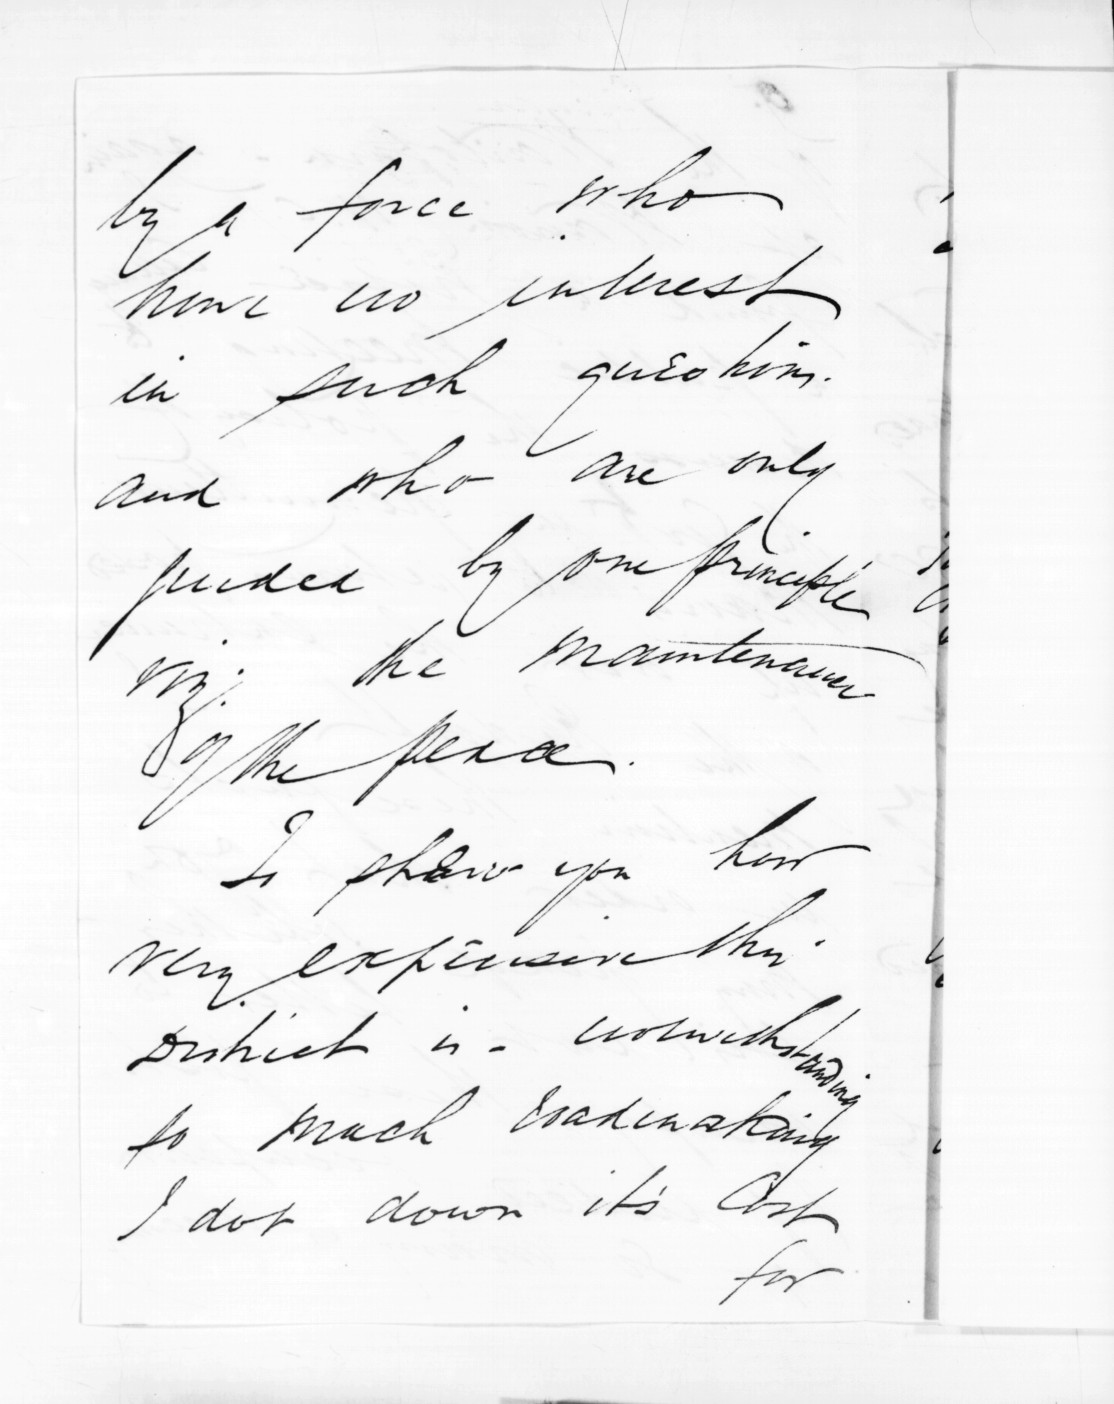 by a force who
have no interest
in such questions.
and who are only
guided by one principle
viz: the maintenance
of the peace.
To shew you how
very expensive this
District is - notwithstanding
so much roadmaking
I dot down it's Cost
for